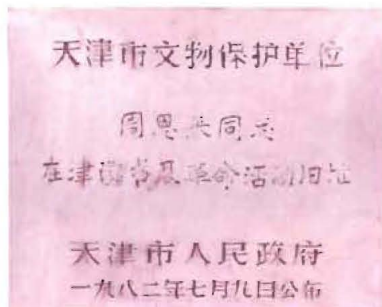 天津市文物保护单位
周恩来同志
在津读书及革命活动旧址
天津市人民政府
一九八二年七月九日公布